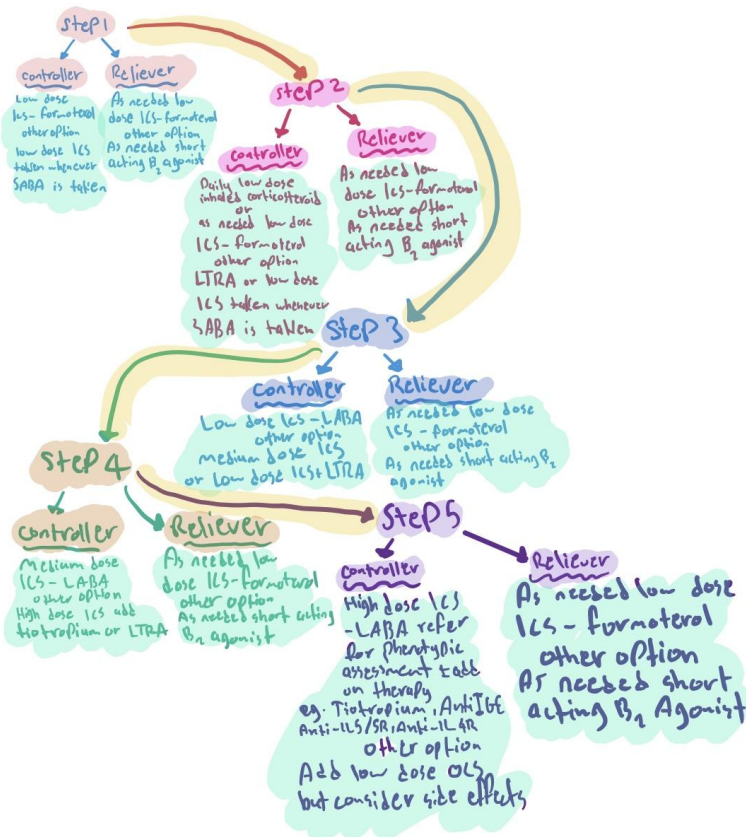 Step 1
Controller
Low dose
Ics-formoterol
other option
low dose ICS
taken whenever
SABA is taken
Reliever
As needed low
dose ICS-formoterol
other option
As needed short
acting B2 agonist
Step 2
Controller
Daily low dose
inhaled corticosteroid
or
as needed low dose
ICS-formoterol
other option
LTRA or low dose
ICS taken whenever
SABA is taken
Reliever
As needed low
dose Ics-formoterol
other option
As needed short
acting B2 agonist
Step 3
Controller
Low dose Ics-LABA
other option
medium dose ICS
or Low dose ICS+LTRA
Reliever
As needed low dose
ICS-formoterol
other option
As needed short acting B2
agonist
Step 4
Controller
Medium dose
ICS-LABA
other option
High dose ICS add
tiotropium or LTRA
Reliever
As needed low
dose ICS-formoterol
other option
As needed short acting
B2 agonist
Step 5
Controller
High dose ICS
-LABA refer
for phenotypic
assessment ± add
on therapy
eg. Tiotropium, AntiIGE
Anti-IL5/5R, Anti-IL4R
other option
Add low dose OCS
but consider side effects
Reliever
As needed low dose
ICS-formoterol
other option
As needed short
acting B2 Agonist